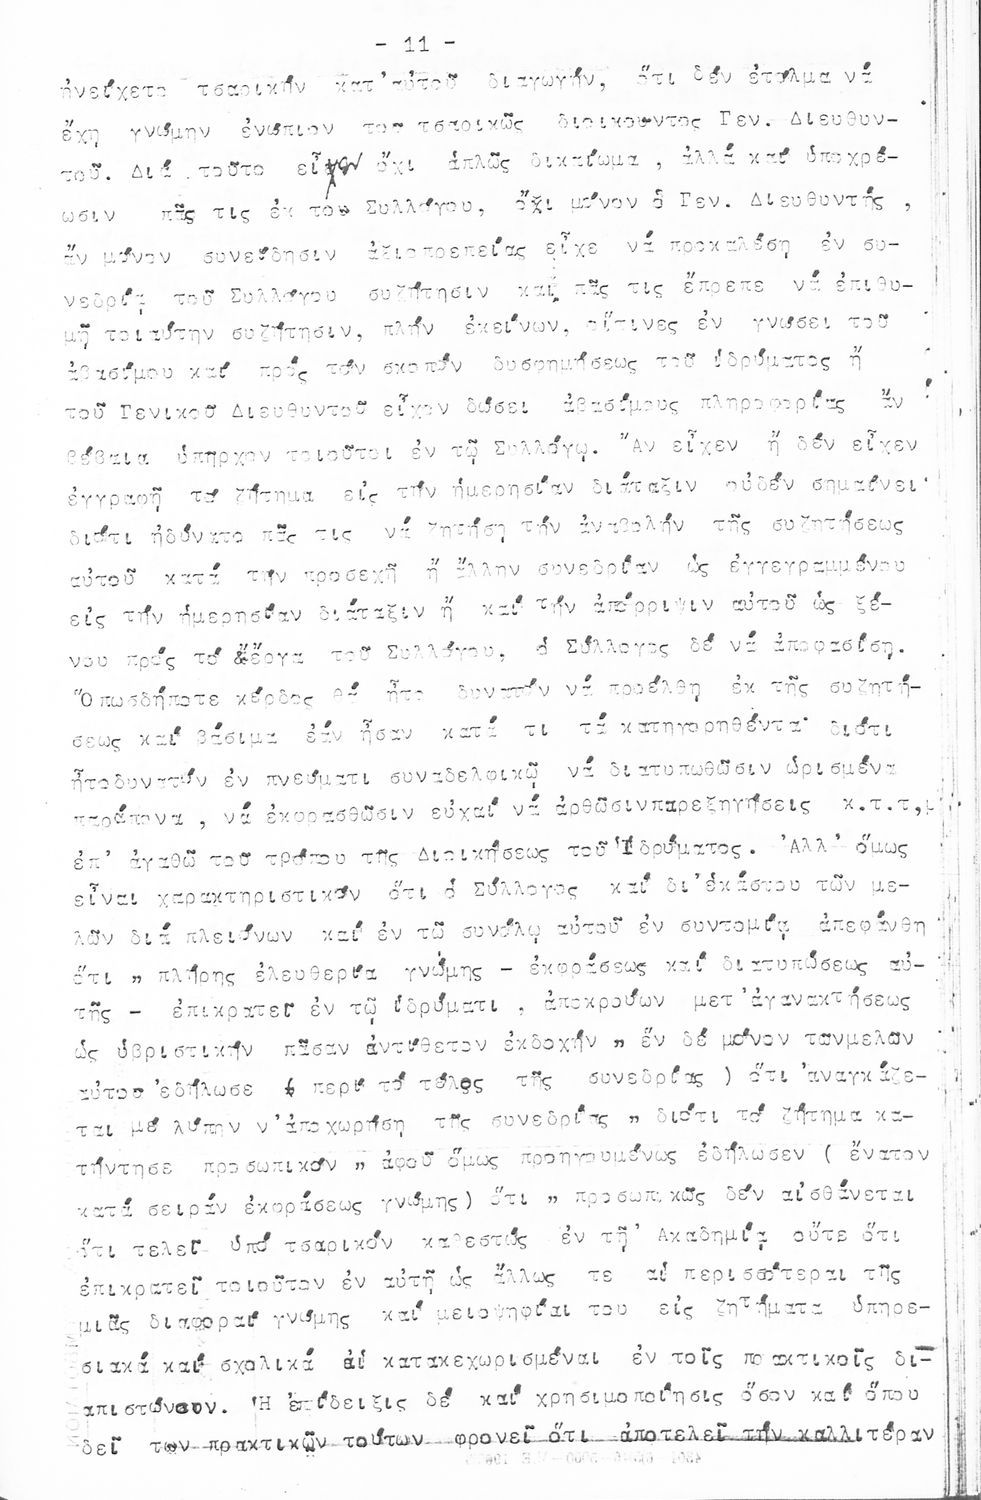 - 11 -
ἠνείχετο τσαρικήν κατ'αὐτοῦ διαγωγήν, ὅτι δέν ἐτόλμα νά
ἔχη γνώμην ἐνώπιον του τσαρικῶς διοικουντος Γεν. Διευθυν-
τοῦ. Διά τοῦτο εἶχον ὄχι ἁπλῶς δικαίωμα , ἀλλά καί ὑποχρέ-
ωσιν πᾶς τις ἐκ του Συλλόγου, ὄχι μόνον ὁ Γεν. Διευθυντής ,
ἄν μόνον συνείδησιν ἀξιοπρεπείας εἶχε νά προκαλέση ἐν συ-
νεδρίᾳ τοῦ Συλλόγου συζήτησιν καί πᾶς τις ἔπρεπε νά ἐπιθυ-
μῇ τοιαύτην συζήτησιν, πλήν ἐκείνων, οἵτινες ἐν γνώσει τοῦ
ἀβασίμου καί πρός τόν σκοπόν δυσφημήσεως τοῦ ἱδρύματος ἤ
τοῦ Γενικοῦ Διευθυντοῦ εἶχον δώσει ἀβασίμους πληροφορίας ἄν
βέβαια ὑπῆρχον τοιοῦτοι ἐν τῷ Συλλόγῳ. Ἄν εἶχεν ἤ δέν εἶχεν
ἐγγραφῆ τό ζήτημα εἰς τήν ἡμερησίαν διάταξιν οὐδέν σημαίνει·
διότι ἠδύνατο πᾶς τις νά ζητήση τήν ἀναβολήν τῆς συζητήσεως
αὐτοῦ κατά την προσεχῆ ἤ ἄλλην συνεδρίαν ὡς ἐγγεγραμμένου
εἰς τήν ἡμερησίαν διάταξιν ἤ καί τήν ἀπόρριψιν αὐτοῦ ὡς ξέ-
νου πρός τό ἔργα τοῦ Συλλόγου, ὁ Σύλλογος δέ νά ἀποφασίση.
Ὁπωσδήποτε κέρδος θά ἦτο δυνατόν νά προέλθη ἐκ τῆς συζητή-
σεως καί βάσιμα ἐάν ἦσαν κατά τι τά κατηγορηθέντα· διότι
ἦτοδυνατόν ἐν πνεύματι συναδελφικῷ νά διατυπωθῶσιν ὡρισμένα
παράπονα , νά ἐκφρασθῶσιν εὐχαί νά ἀρθῶσινπαρεξηγήσεις κ.τ.τ,
ἐπ' ἀγαθῶ του τρόπου τῆς Διοικήσεως τοῦ Ἱδρύματος. Ἀλλ' ὅμως
εἶναι χαρακτηριστικόν ὅτι ὁ Σύλλογος καί δι'ἑκάστου τῶν με-
λῶν διά πλειόνων καί ἐν τῶ συνόλῳ αὐτοῦ ἐν συντομίᾳ ἀπεφάνθη
ὅτι „ πλήρης ἐλευθερία γνώμης - ἐκφράσεως καί διατυπώσεως αὐ-
τῆς - ἐπικρατεῖ ἐν τῷ ἱδρύματι , ἀποκρούων μετ'ἀγανακτήσεως
ὡς ὑβριστικήν πᾶσαν ἀντίθετον ἐκδοχήν „ ἕν δέ μόνον τωνμελων
αὐτου ἐδήλωσε ( περί τό τέλος τῆς συνεδρίας ) ὅτι 'αναγκάζε-
ται μέ λύπην ν'ἀποχωρήση τῆς συνεδρίας „ διότι τό ζήτημα κα-
τήντησε προσωπικόν „ ἀφοῦ ὅμως προηγουμένως ἐδήλωσεν ( ἔνατον
κατά σειράν ἐκφράσεως γνώμης) ὅτι „ προσωπικῶς δέν αἰσθάνεται
ὅτι τελεῖ ὑπό τσαρικόν καθεστώς ἐν τῇ Ἀκαδημίᾳ οὔτε ὅτι
ἐπικρατεῖ τοιοῦτον ἐν αὐτῇ ὡς ἄλλως τε αἱ περισσότεραι τῆς
μιᾶς διαφοραί γνώμης καί μειοψηφίαι του εἰς ζητήματα ὑπηρε-
σιακά καί σχολικά αἱ κατακεχωρισμέναι ἐν τοῖς πρακτικοῖς δι-
απιστώνουν. Ἡ ἐπίδειξις δέ καί χρησιμοποίησις ὅσον καί ὅπου
δεῖ των πρακτικῶν τούτων φρονεῖ ὅτι ἀποτελεῖ τήν καλλιτέραν